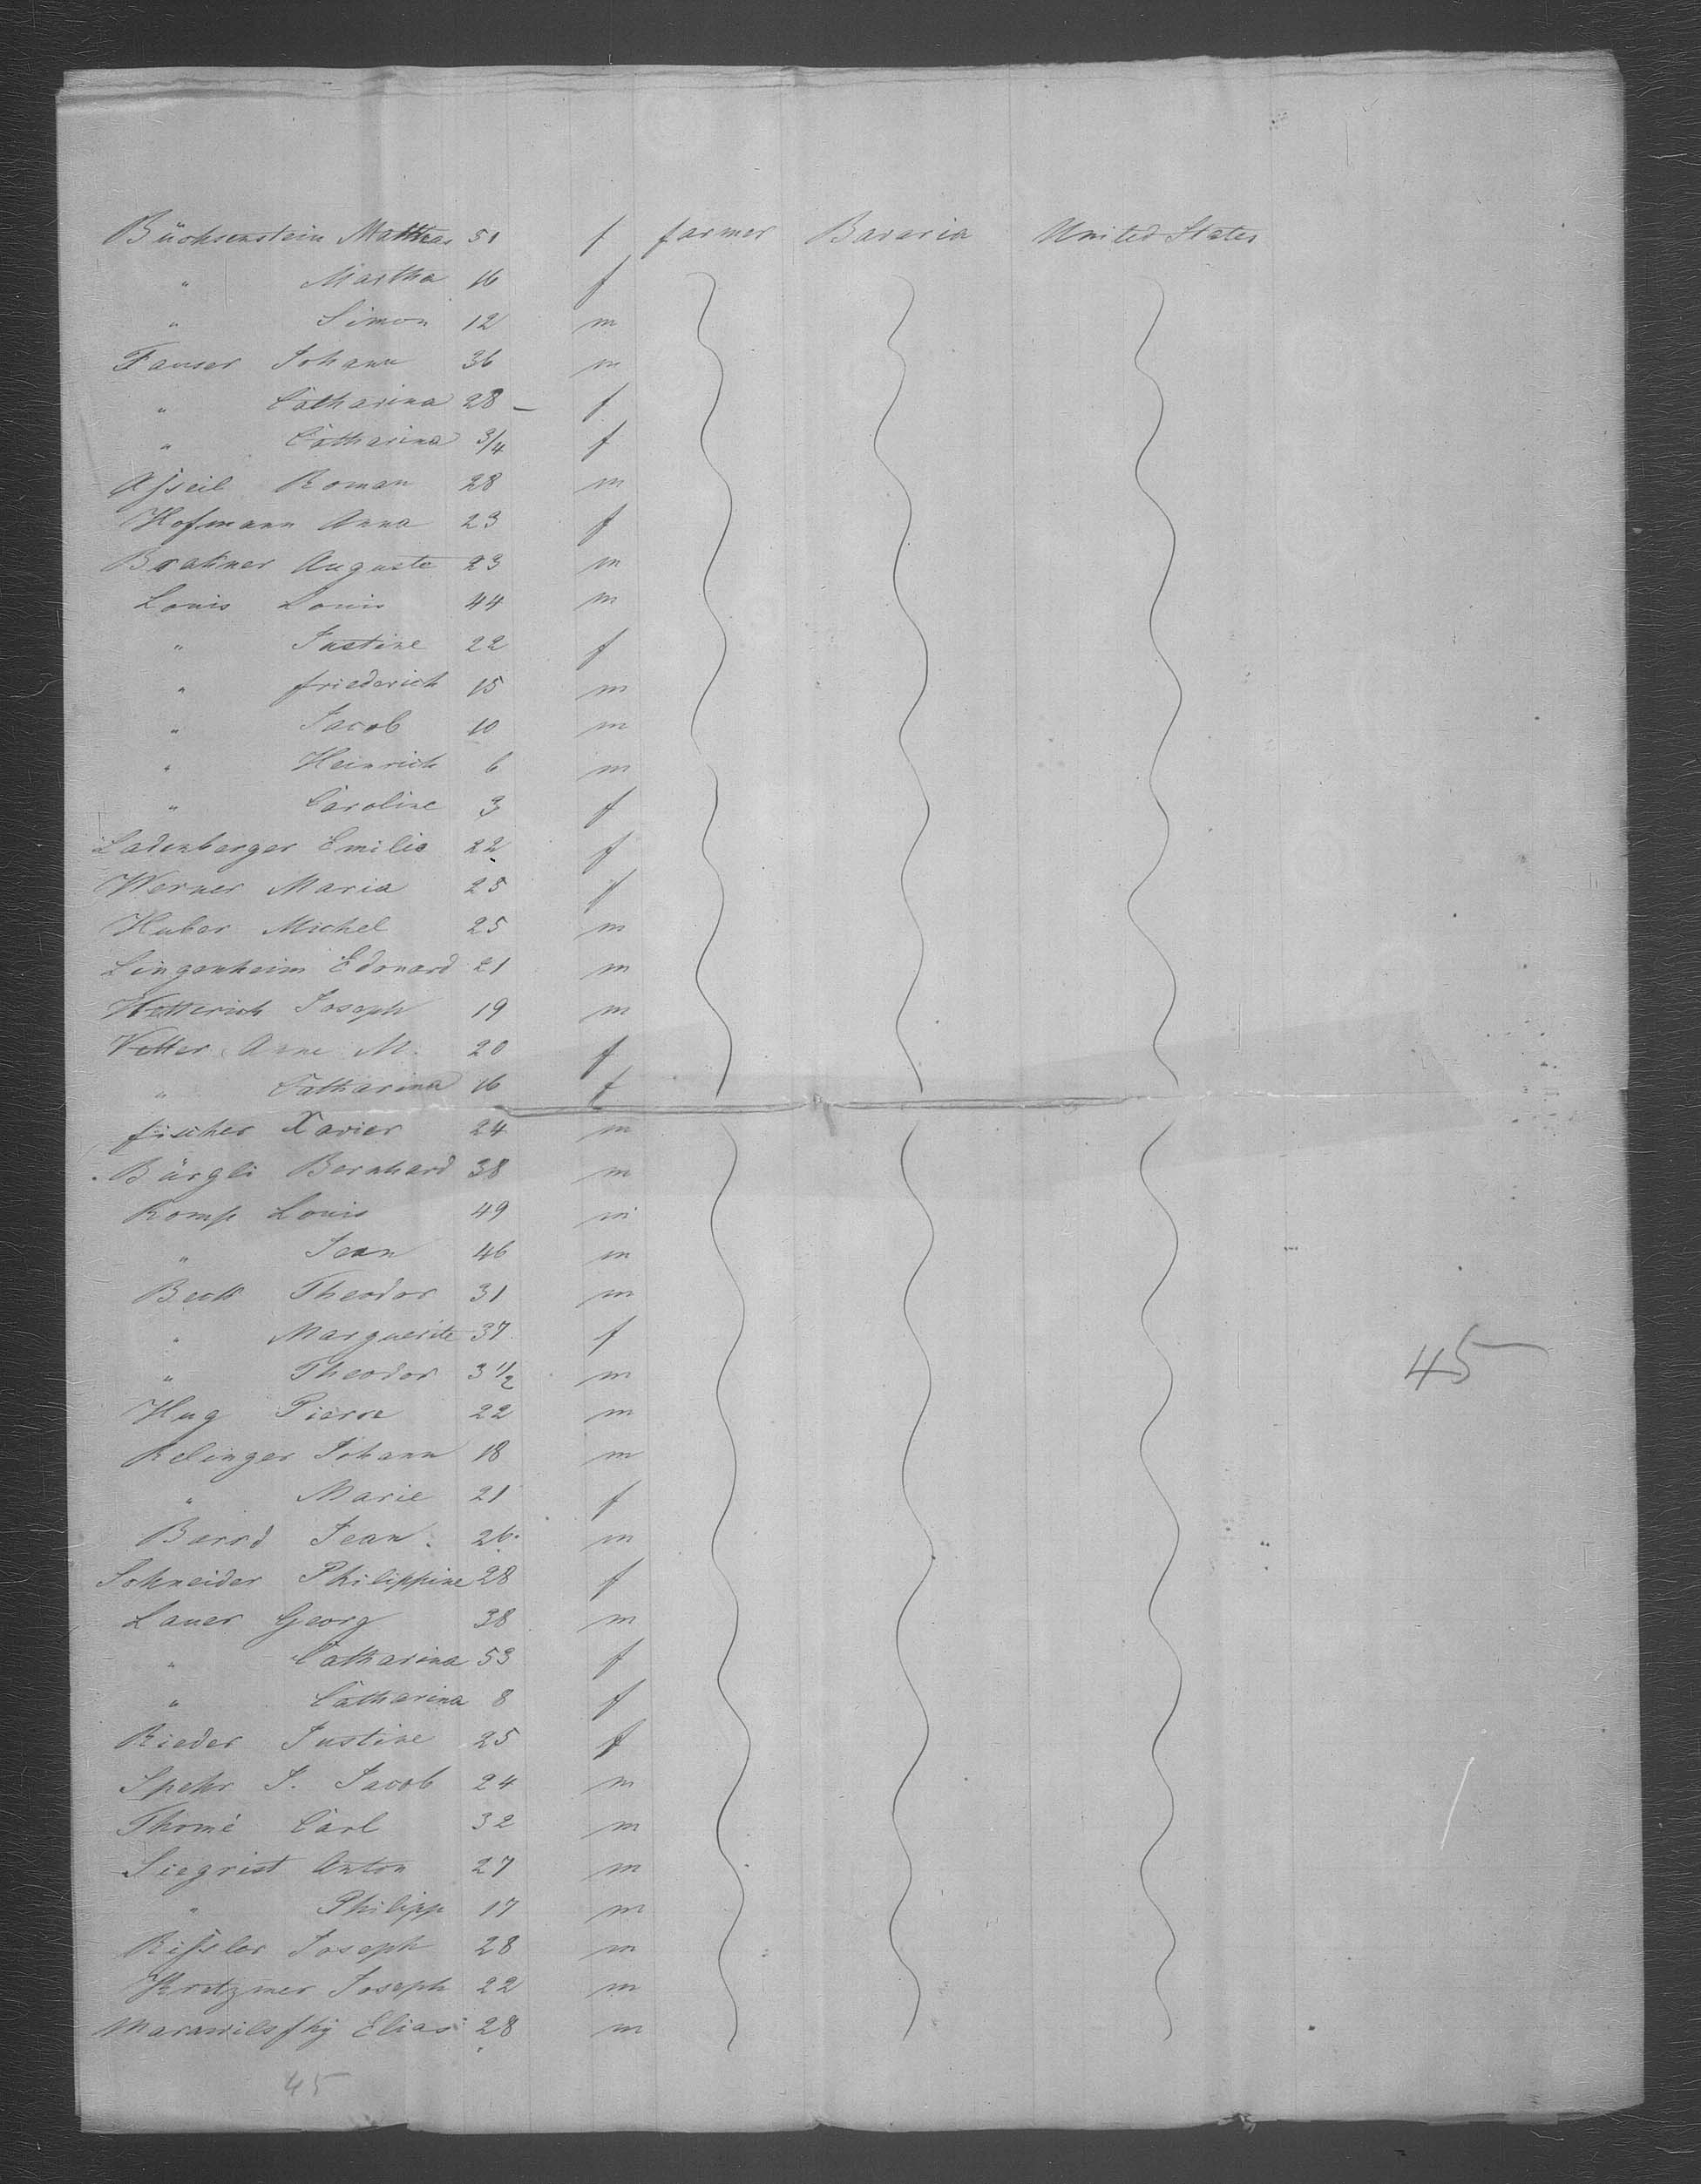 Büchsenstein Matthias 51 f farmer Bavaria United States
" Martha 16 f
" Simon 12 m
Fauser Johann 36 m
" Catharina 28 – f
" Catharina 3/4 f
Asseil Roman 28 m
Hofmann Anna 23 f
Auguste 23 m
Louis Louis 44 m
" Justine 22 f
" friederich 15 m
" Jacob 10 m
" Heinrich 6 m
" Caroline 3 f
Ladenberger Emilie 22 f
Werner Maria 25 f
Huber Michel 25 m
Lingenheim Edouard 21 m
Hetterich Joseph 19 m
Vetter Anne M. 20 f
" Catharina 16 f
fischer Xavier 24 m
Bürgli Bernhard 38 m
Romp Louis 49 m
" Jean 46 m
Beck Theodor 31 m
" Marguerite 37 f
" Theodor 3 1/2 m
Hug Pierre 22 m
Relinger Johann 18 m
" Marie 21 f
Jean 26 m
Schneider Philippine 28 f
Lauer Georg 38 m
" Catharina 53 f
" Catharina 8 f
Rieder Justine 25 f
Spehr J. Jacob 24 m
Thomé Carl 32 m
Siegrist Anton 27 m
" Philipp 17 m
Rissler Joseph 28 m
Kratzmer Joseph 22 m
Elias 28 m
45
45